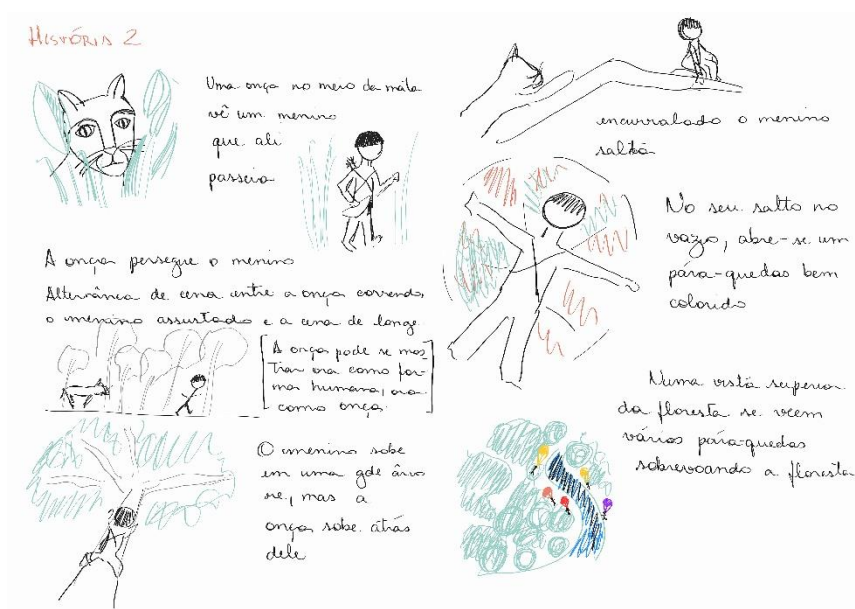 HISTÓRIA 2
Uma onça no meio da mata
vê um menino
que ali
passeia
A onça persegue o menino
Alternância de cena entre a onça correndo,
o menino assustado e a cena de longe
[A onça pode se mos-
trar ora como for-
ma humana, ora
como onça]
O menino sobe
em uma gde árvo
re, mas a
onça sobe atrás
dele
encurralado o menino
salta
No seu salto no
vazio, abre-se um
pára-quedas bem
colorido
Numa vista superior
da floresta se veem
vários pára-quedas
sobrevoando a floresta